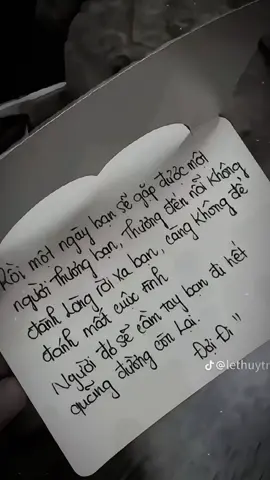 Rồi một ngày bạn sẽ gặp được một
người thương bạn, thương đến nỗi không
đành lòng rời xa bạn, càng không để
đánh mất cuộc tình
Người đó sẽ cầm tay bạn đi hết
quãng đường còn lại.
Đợi Đi "
@lethuytr